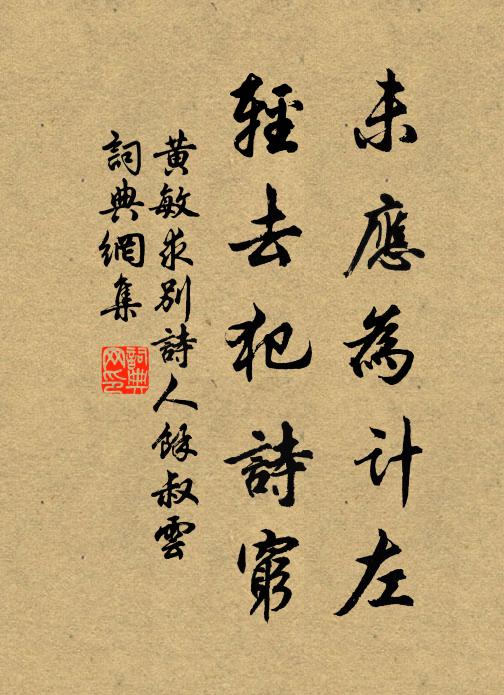 未應為計左
輕去犯詩窮
黃敏求別詩人餘叔雲
詞典網集
詞典網印